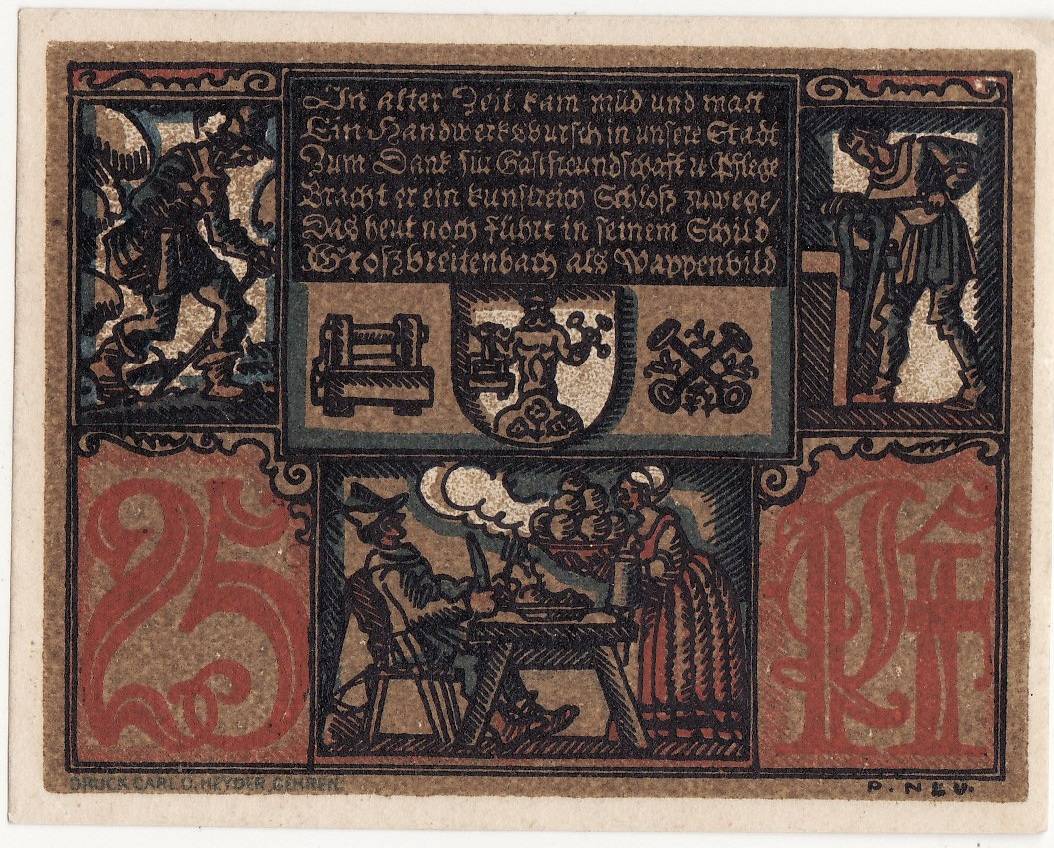 In alter Zeit kam müd und matt
Ein Handwerksbursch in unsere Stadt
Zum Dank für Gastfreundschaft u Pflege
Bracht er ein kunstreich Schloß zuwege,
Das heut noch führt in seinem Schild
Großbreitenbach als Wappenbild
25 Pf
DRUCK CARL O. HEYDER, GEHREN.
P. NEU.